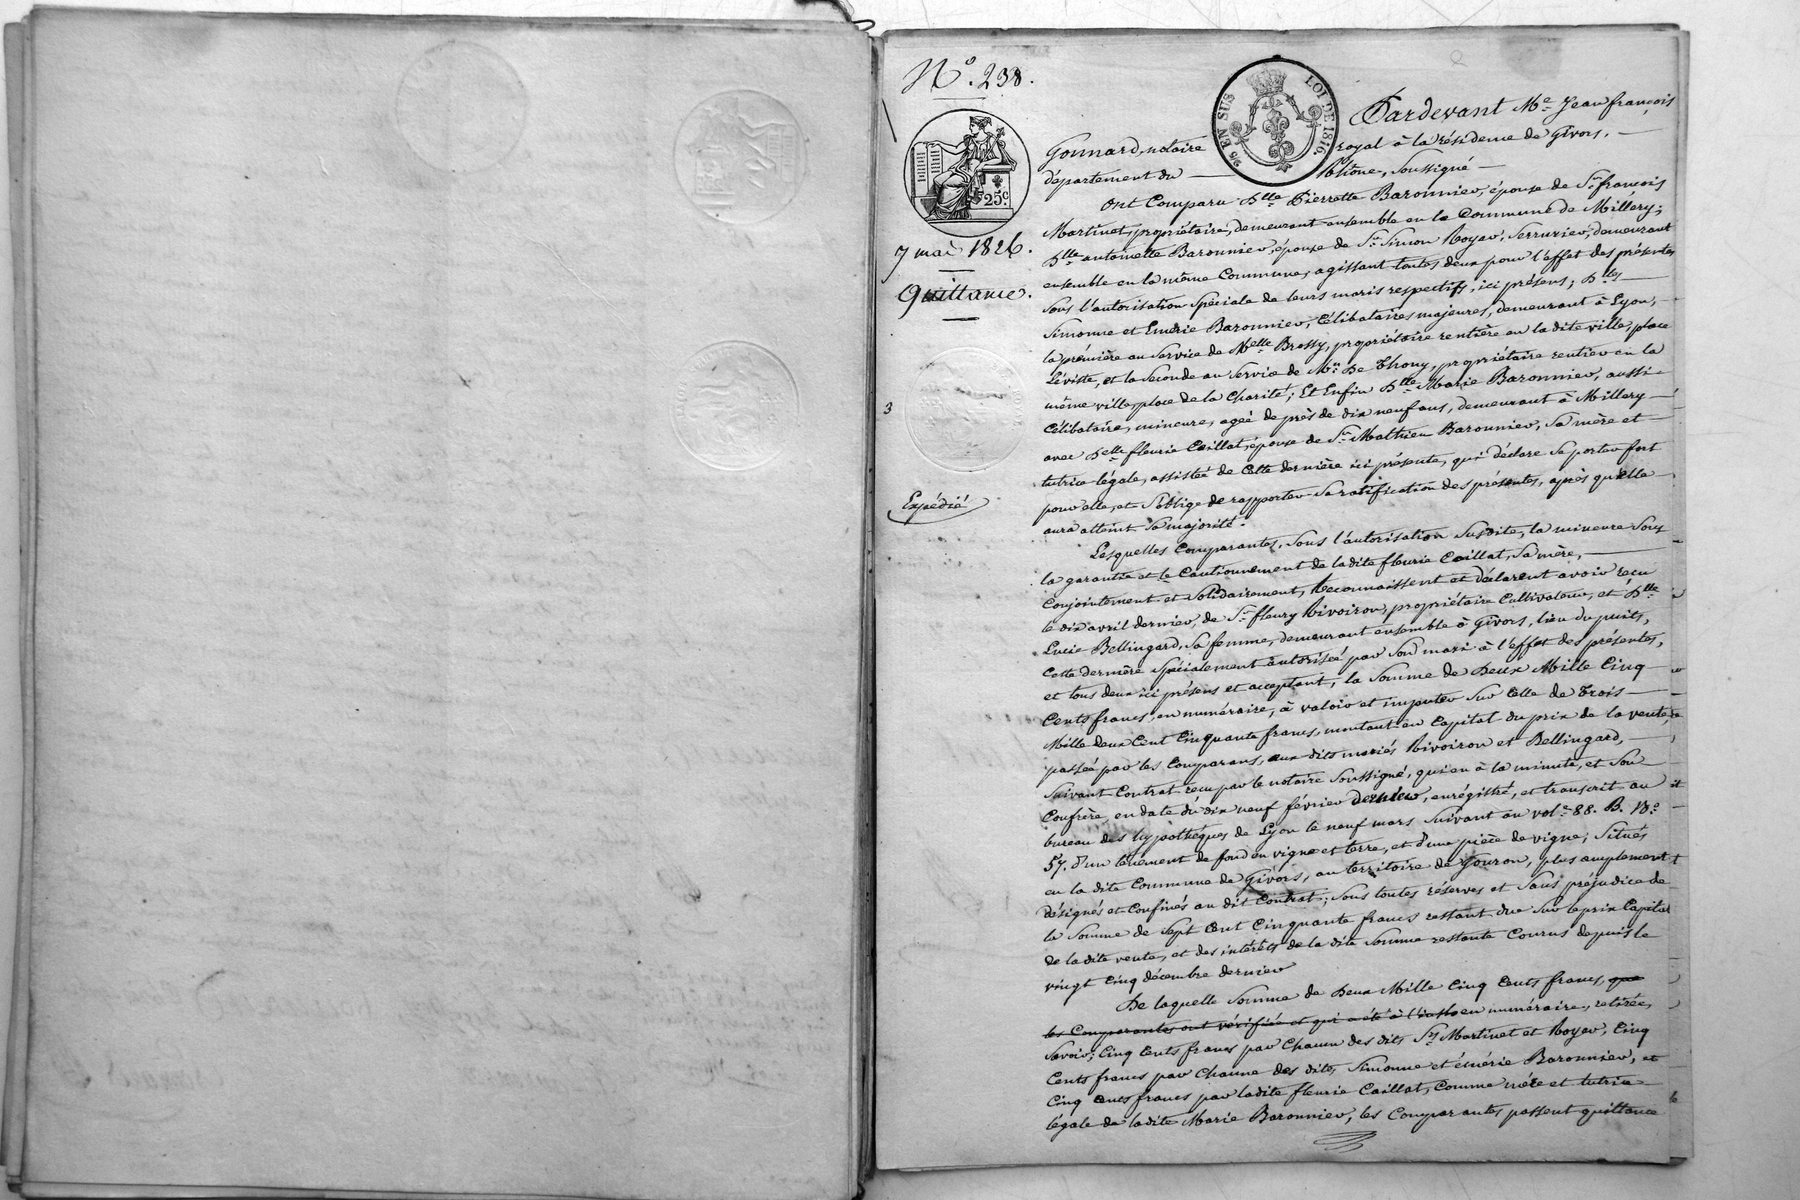 N.° 238.
26 EN SUS
LOI DE 1816.
25c
7 mai 1826.
Quittance.
3
Expédié
Pardevant Me Jean françois
Gonnard, notaire royal à la résidence de Givors,
département du Rhône, Soussigné
Ont Comparu Dlle Pierrette Baronnier, épouse de Sr françois
Martinet, propriétaire, demeurant ensemble en la Commune de Millery;
Dlle antoinette Baronnier, épouse de Sr Simon Royer, Serrurier, demeurant
ensemble en la même Commune, agissant toutes deux pour l'effet des présentes
Sous l'autorisation Spéciale de leurs maris respectifs, ici présens; Dlles
Simonne et Emérie Baronnier, Célibataires majeures, demeurant à Lyon,
la première au Service de Melle Brossy, propriétaire rentière en la dite ville, place
Léviste, et la Seconde au Service de Mr De Thony, propriétaire rentier en la
même ville, place de la Charité; Et Enfin Dlle Marie Baronnier, aussi
Célibataire, mineure, agée de près de dix neuf ans, demeurant à Millery
avec Delle fleurie Caillat, épouse de Sr Mathieu Baronnier, Sa mère et
tutrice légale, assistée de Cette dernière ici présente, qui déclare Se porter fort
pour elle, et S'oblige de rapporter Sa ratification des présentes, après qu'elle
aura atteint Sa majorité.
Lesquelles Comparantes, Sous l'autorisation Susdite, la mineure Sous
la garantie et le Cautionnement de la dite fleurie Caillat, Sa mère,
Conjointement et Solidairement, Reconnaissent et déclarent avoir reçu
le dix avril dernier, de Sr fleury Rivoiron, propriétaire Cultivateur, et Dlle
Lucie Bellingard, Sa femme, demeurant ensemble à Givors, lieu du puits,
Cette dernière Spécialement autorisée par Son mari à l'effet des présentes,
et tous deux ici présens et acceptant, la Somme de Deux Mille Cinq
Cents francs, en numéraire, à valoir et imputer Sur Celle de Trois
Mille deux Cent Cinquante francs, montant en Capital du prix de la vente
passée par les Comparans, aux dits mariés Rivoiron et Bellingard,
Suivant Contrat reçu par le notaire Soussigné, qui en à la minute, et Son
Confrère, en date du dix neuf février dernier, enrégistré, et transcrit au
bureau des hypothèques de Lyon le neuf mars Suivant au vol. 88. B. N.°
57. d'un tènement de fond en vigne et terre, et d'une pièce de vigne; Situés
en la dite Commune de Givors, au territoire de Gouron, plus amplement
désignés et Confinés au dit Contrat; Sous toutes réserves et Sans préjudice de
la Somme de Sept Cent Cinquante francs restant due Sur le prix Capital
de la dite vente, et des intérêts de la dite Somme restante Courus depuis le
vingt Cinq décembre dernier
De laquelle Somme de Deux Mille Cinq Cents francs, que
les Comparantes ont vérifiée et qui a été à l'instant en numéraire, retirée,
Savoir; Cinq Cents francs par Chacun des dits Srs Martinet et Royer, Cinq
Cents francs par Chacune des dites Simonne et émérie Baronnier, et
Cinq Cents francs par la dite fleurie Caillat, Comme mère et tutrice
légale de la dite Marie Baronnier, les Comparantes passent quittance